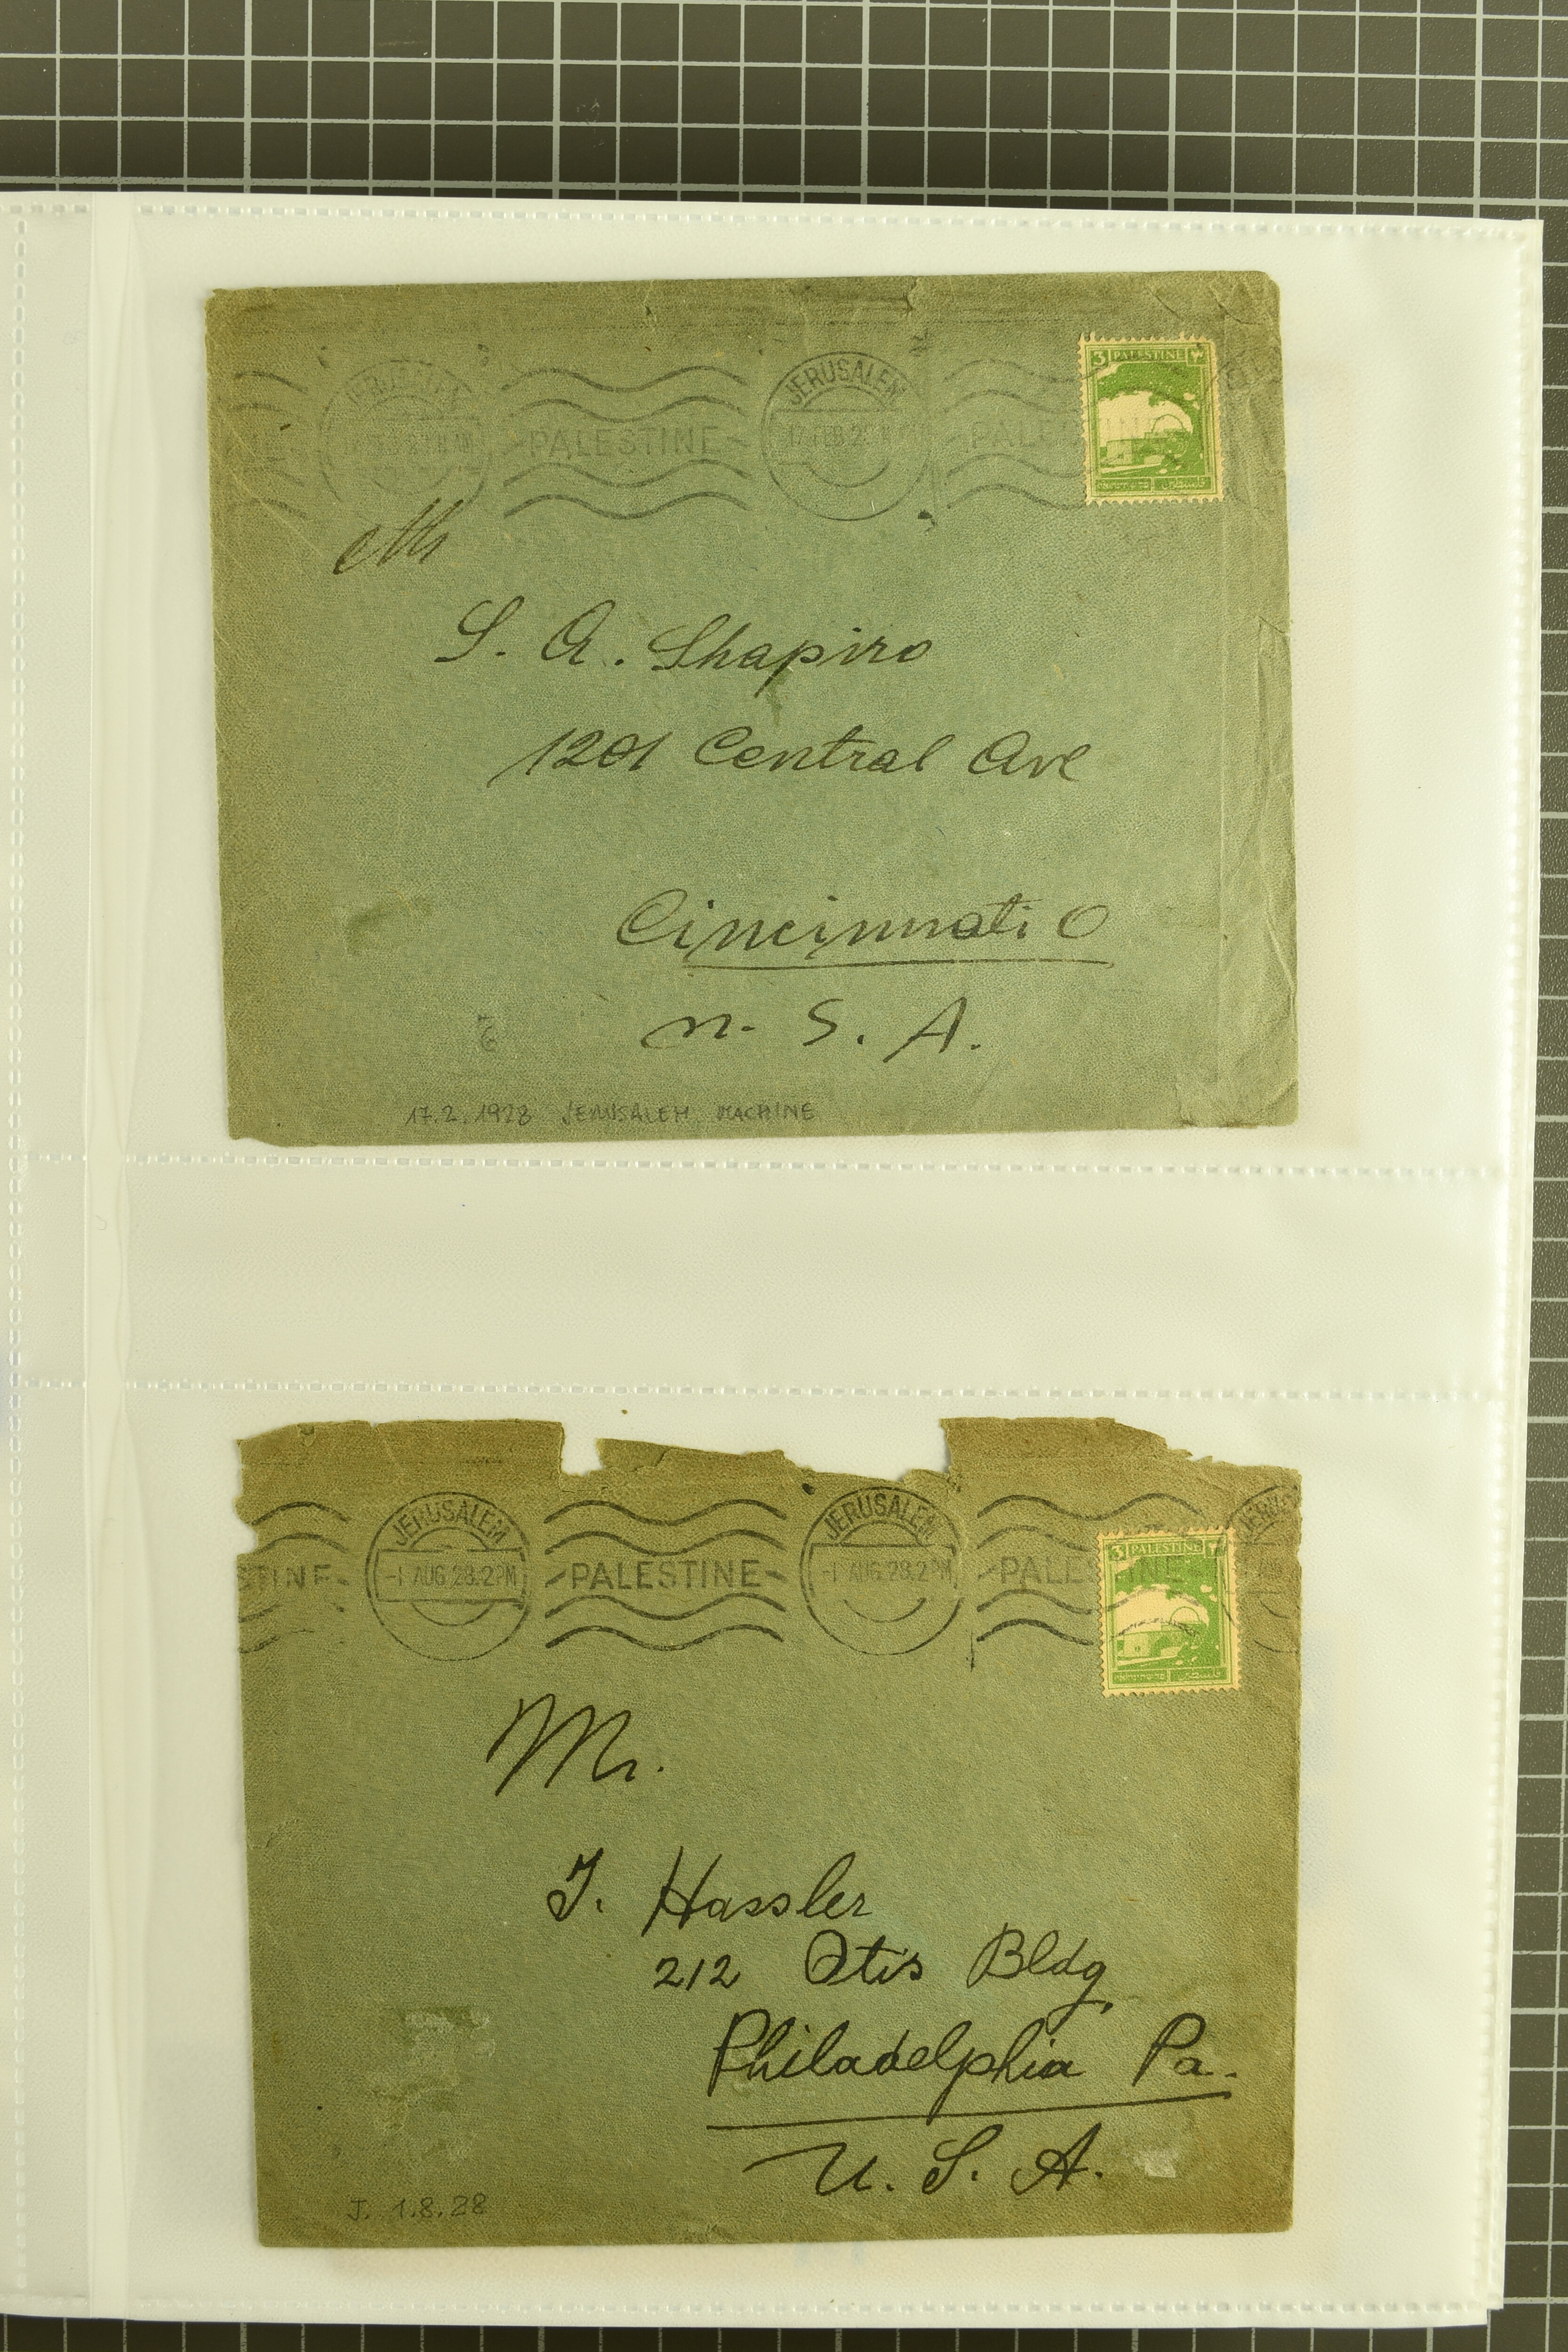 PALESTINE
JERUSALEM
17 FEB 28
3 PALESTINE
Mr
S. A. Shapiro
1201 Central Ave
Cincinnati O
U. S. A.
17.2.1928 JERUSALEM MACHINE
TINE
JERUSALEM
-1 AUG 28.2PM
PALESTINE
JERUSALEM
-1 AUG 28.2PM
PALESTINE
3 PALESTINE
Mr.
J. Hassler
212 Otis Bldg
Philadelphia Pa.
U. S. A.
J. 1.8.28